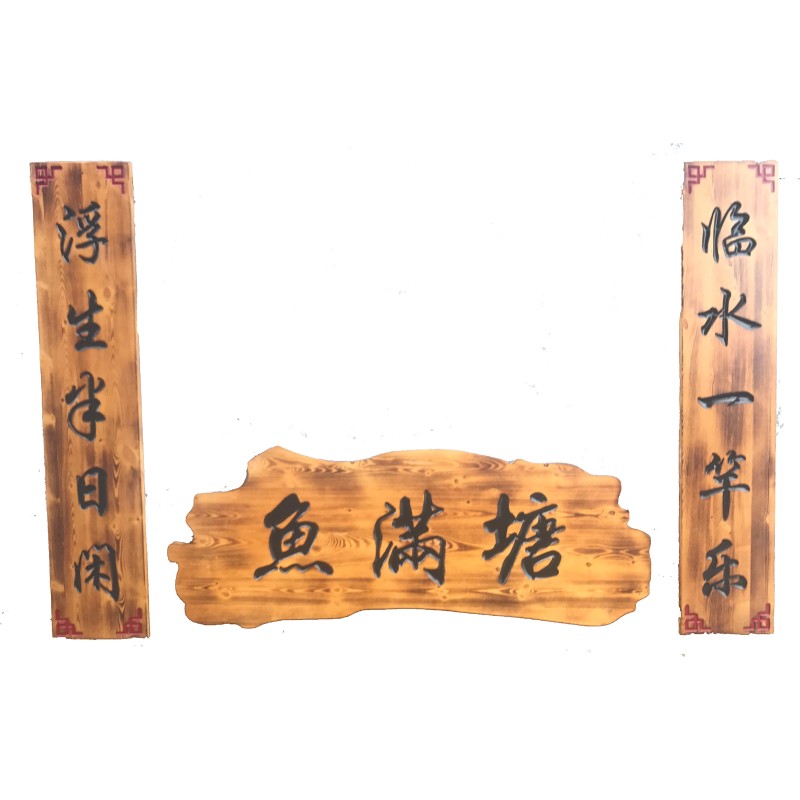 临水一竿乐
浮生半日闲
魚满塘